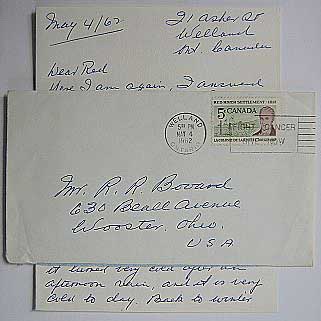 May 4/62
71 Asher St
Welland
Ont Canada
Dear Red
Here I am again, I answered
WELLAND
5 PM
MAY 4
1962
ONTARIO
RED RIVER SETTLEMENT 1812
5¢ CANADA
FIGHT CANCER
Mr. R. R. Bovard
630 Beall Avenue
Wooster, Ohio.
USA
it turned very cold after an
afternoon rain, and it is very
cold to day. Back to winter